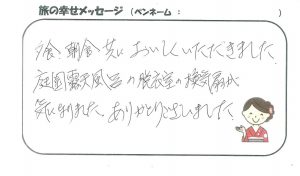 旅の幸せメッセージ (ペンネーム: )
夕食、朝食共においしくいただきました。
庭園露天風呂の脱衣室の換気扇が
気になりました。ありがとうございました。